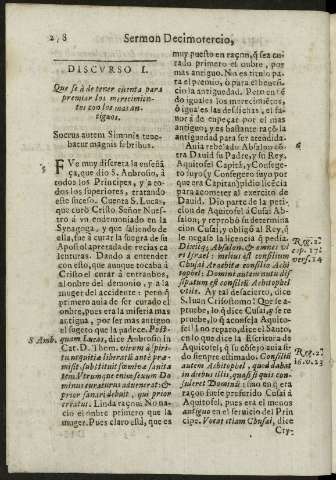 278 Sermon Decimotercio,
DISCVRSO I.
Que se à de tener cuenta para
premiar los merecimien-
tos con los mas an-
tiguos.
Socrus autem Simonis tene-
batur magnis febribus.
FVe muy discreta la enseñã
ça, que dio S. Ambrosio, à
todos los Principes, y a to-
dos los superiores, tratando
este suceso. Cuenta S. Lucas,
que curò Cristo Señor Nuest-
ro à vn endemoniado en la
Synagoga, y que saliendo de
ella, fue à curar la suegra de su
Apostol apretada de recias ca
lenturas. Dando a entender
con esto, que aunque tocaba à
Cristo el curar à entrambos,
al onbre del demonio, y a la
muger del accidente: pero à
primero auia de ser curado el
onbre, pues era la miseria mas
antigua, por ser mas antiguo
el sugeto que la padece. Post-
quam Lucas, dice Ambrosio in
S Amb.
Cat. D. Thom. virum à spiri-
tu nequitia liberatũ ante præ-
misit, substituit fœminæ sanita
tem. Vtrumque enim sexum Do
minus curaturus aduenerat: &
prior sanari debuit, qui prior
creatus. Linda raçon. No na-
cio el onbre primero que la
muger. Pues claro està, que es
muy puesto en raçon, q̃ sea cu-
rado primero el onbre, por
mas antiguo. No es titulo pa-
ra el premio, ò para el benefi-
cio la antiguedad. Pero en fe
de iguales los merecimiẽtos,
ò iguales las desdichas, el fa-
uor à de enpeçar por el mas
antiguo; y es bastante raçõ la
antiguedad para ser atendida.
Auia rebelado Absalon cõ
tra Dauid su Padre, y su Rey.
Aquitofel Capitã, y Consege-
ro suyo (y Consegero suyo por
que era Capitan) pidio licẽcia
para acometer al exercito de
Dauid. Dio parte de la peti-
cion de Aquitofel à Cusai Ab-
salon, y reprobò su determina
cion Cusai, y obligò al Rey, q̃
le negase la licencia q̃ pedia.
Dixitq; Absalom, & omnes vi
ri Israel: melius est consilium
Chusai Arachitæ consilio Achi
topbel: Domini autem nutu dis
sipatum est consilium Achitophel
vtile. Ay tal desacierto, dice
S. Iuan Crisostomo? Que se a-
pruebe, lo q̃ dice Cusai, y se re
pruebe, lo q̃ aconseja Aquito-
fel! I no reparo, dice el Santo,
en lo que dice la Escritura de
Aquitofel, q̃ su cõsejo auia si-
do sienpre estimado. Consiliũ
autem Achitophel, quod dabat
in diebus illis, quasi si quis con-
suleret Dominũ: sino en que
raçon fuese preferido Cusai à
Aquitofel, pues era el menos
antiguo en el seruicio del Prin
cipe. Vocat etiam Chusai, dice
Cry-